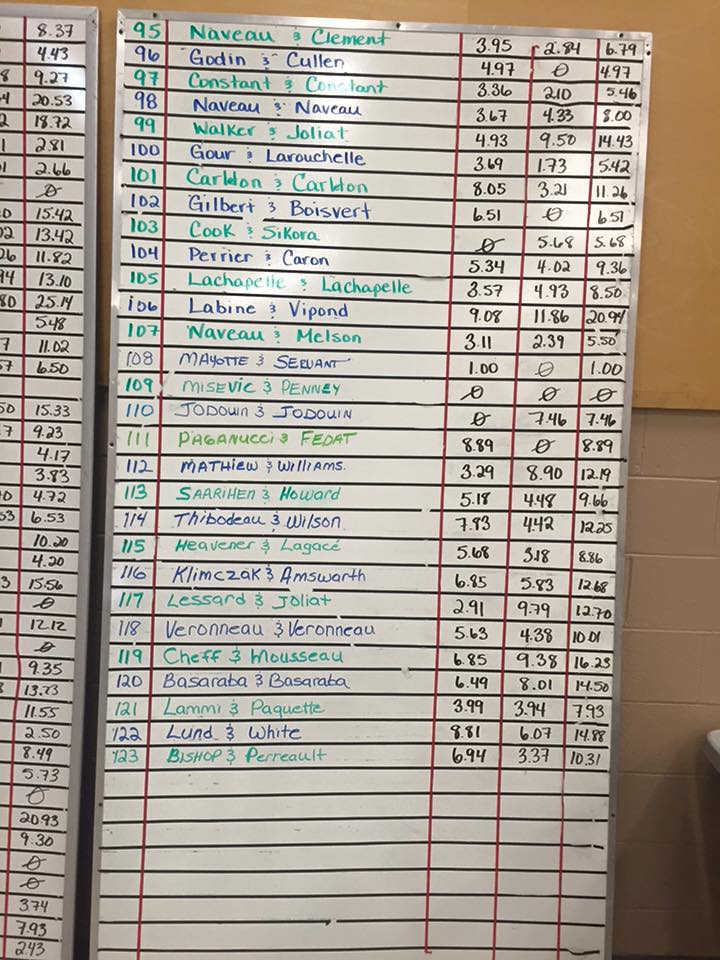 8.37
4.43
8 9.27
4 20.53
2 18.72
1 2.81
1 2.66
Ø
0 15.42
02 13.42
26 11.82
94 13.10
80 25.14
5.48
7 11.02
7 6.50
50 15.33
7 9.23
4.17
3.83
0 4.72
53 6.53
10.20
4.20
3 15.56
Ø
12.12
Ø
9.35
13.73
11.55
2.50
8.49
5.73
Ø
20.93
9.30
Ø
Ø
3.74
7.93
2.43
95 Naveau & Clement 3.95 2.84 6.79
96 Godin & Cullen 4.97 Ø 4.97
97 Constant & Constant 3.36 2.10 5.46
98 Naveau & Naveau 3.67 4.33 8.00
99 Walker & Joliat 4.93 9.50 14.43
100 Gour & Larouchelle 3.69 1.73 5.42
101 Carldon & Carldon 8.05 3.21 11.26
102 Gilbert & Boisvert 6.51 Ø 6.51
103 Cook & Sikora Ø 5.68 5.68
104 Perrier & Caron 5.34 4.02 9.36
105 Lachapelle & Lachapelle 3.57 4.93 8.50
106 Labine & Vipond 9.08 11.86 20.94
107 Naveau & Melson 3.11 2.39 5.50
108 MAYOTTE & SERVANT 1.00 Ø 1.00
109 MISEVIC & PENNEY Ø Ø Ø
110 JODOUIN & JODOUIN Ø 7.46 7.46
111 PAGANUCCI & FEDAT 8.89 Ø 8.89
112 MATHIEW & Williams. 3.29 8.90 12.19
113 SAARIHEN & Howard 5.18 4.48 9.66
114 Thibodeau & Wilson 7.83 4.42 12.25
115 Heavener & Lagacé 5.68 3.18 8.86
116 Klimczak & Amswarth 6.85 5.83 12.68
117 Lessard & Joliat 2.91 9.79 12.70
118 Veronneau & Veronneau 5.63 4.38 10.01
119 Cheff & Mousseau 6.85 9.38 16.23
120 Basaraba & Basaraba 6.49 8.01 14.50
121 Lammi & Paquette 3.99 3.94 7.93
122 Lund & White 8.81 6.07 14.88
123 BISHOP & Perreault 6.94 3.37 10.31